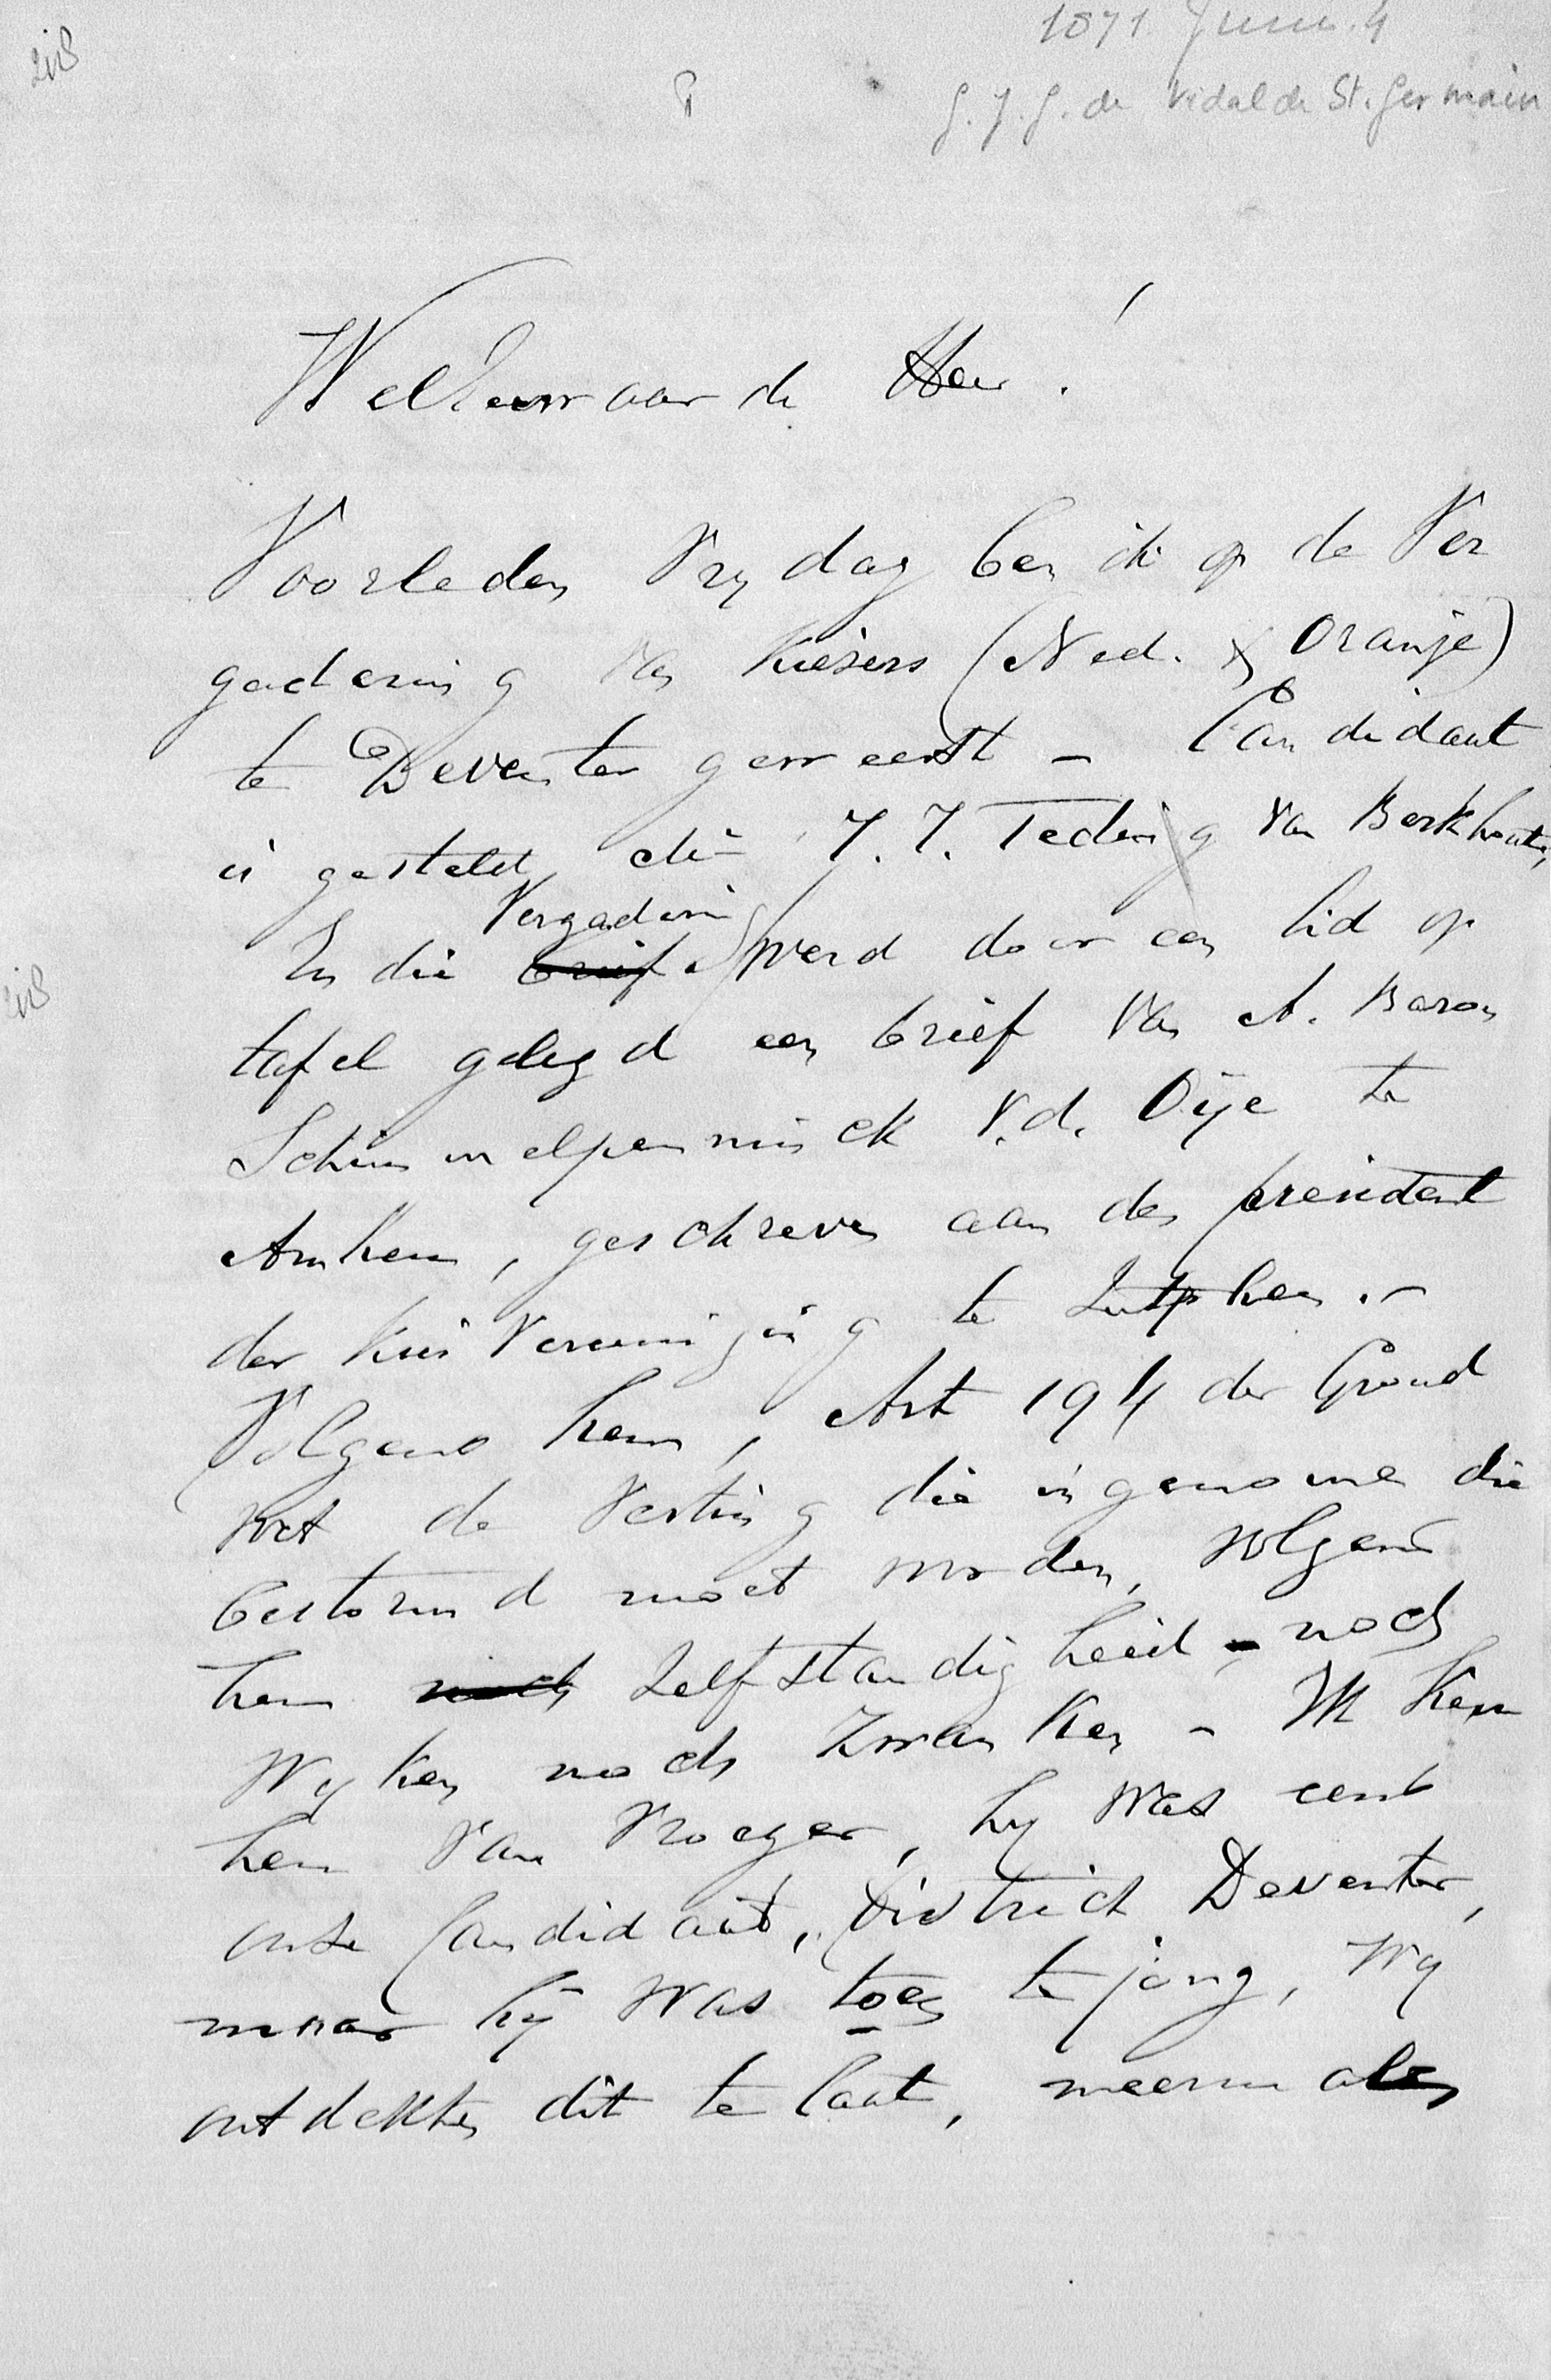 1871 Juni. 4
G. J. G. de Vidal de St. Germain
WelEerwaarde Heer!
Voorleden Vrydag ben ik op de Ver
gadering van kiezers (Ned. & Oranje)
te Deventer geweest – Candidaat
is gesteld J. J. Teding van Berkhout,
In die brief Vergadering werd door een lid op
tafel gelegd een brief van A. Baron
Schimmelpenninck v.d. Oije te
Arnhem, geschreven aan den president
der kies Vereeniging te Zutphen. –
Volgens hem, Art 194 der Grond
wet de Vesting die ingenomen die
bestormd moet worden, volgens
hem noch Zelfstandigheid – noch
Wyken noch Zwanken – Ik ken
hem van Vroeger, hy was eens
onze Candidaat, District Deventer,
maar hij was toen te jong, Wy
ontdekten dit te laat, meermalen